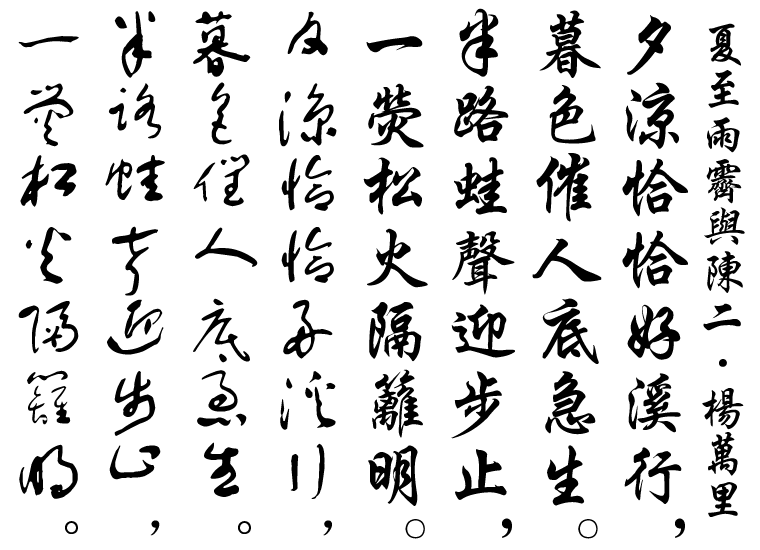 夏至雨霽與陳二・楊萬里
夕涼恰恰好溪行，
暮色催人底急生。
半路蛙聲迎步止，
一熒松火隔籬明。
夕涼恰恰好溪行，
暮色催人底急生。
半路蛙聲迎步止，
一熒松火隔籬明。